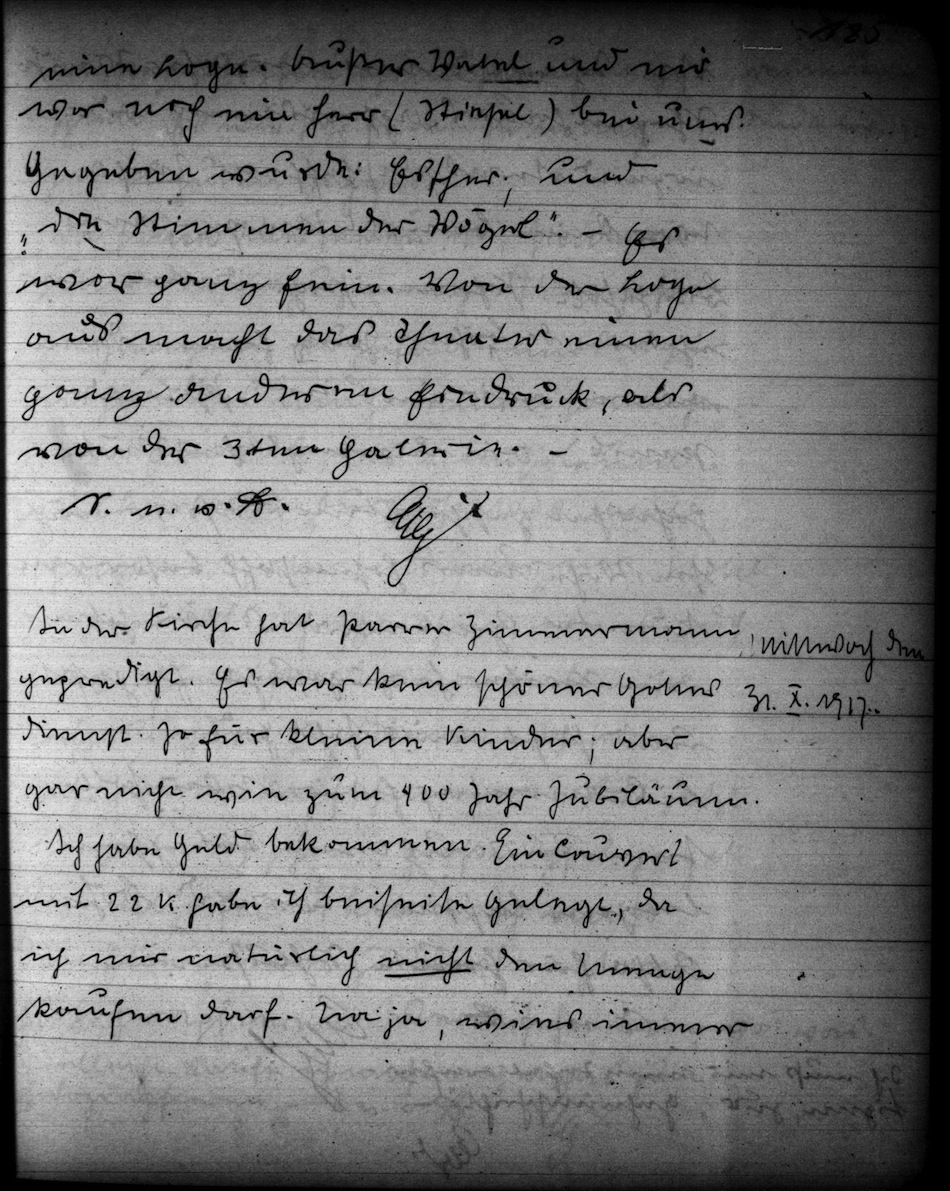 eine Loge. Außer Vatel und mir
war noch ein Herr (Stiefel) bei uns.
Gegeben wurde: Esther, und
„die Stimmen der Vögel“. – Es
war ganz fein. Von der Loge
aus macht das Theater einen
ganz anderen Eindruck, als
von der 3ten Galerie. –
N. u. w. A.
In der Kirche hat Parrer Zimmermann
Mittwoch den
31. X. 1917.
gepredigt. Es war kein schöner Gottes
dienst. Ja für kleine Kinder; aber
gar nicht wie zum 400 Jahr Jubiläum.
Ich habe Geld bekommen. Ein Couvert
mit 22 K habe ich beiseite gelegt, da
ich mir natürlich nicht den
kaufen darf. Na ja, wies immer